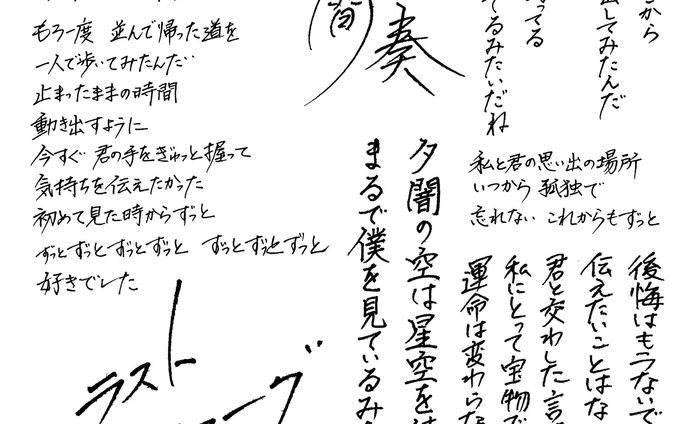 もう一度 並んで帰った道を
一人で歩いてみたんだ
止まったままの時間
動き出すように
今すぐ 君の手をぎゅっと握って
気持ちを伝えたかった
初めて見た時からずっと
ずっとずっとずっとずっと ずっとずっとずっと
好きでした
ラスト
間奏
から
してみたんだ
ってる
てるみたいだね
私と君の思い出の場所
いつから 孤独で
忘れない これからもずっと
後悔はもうないで
伝えたいことはな
君と交わした言
私にとって宝物で
運命は変わらな
夕闇の空は星空を
まるで僕を見ているみ